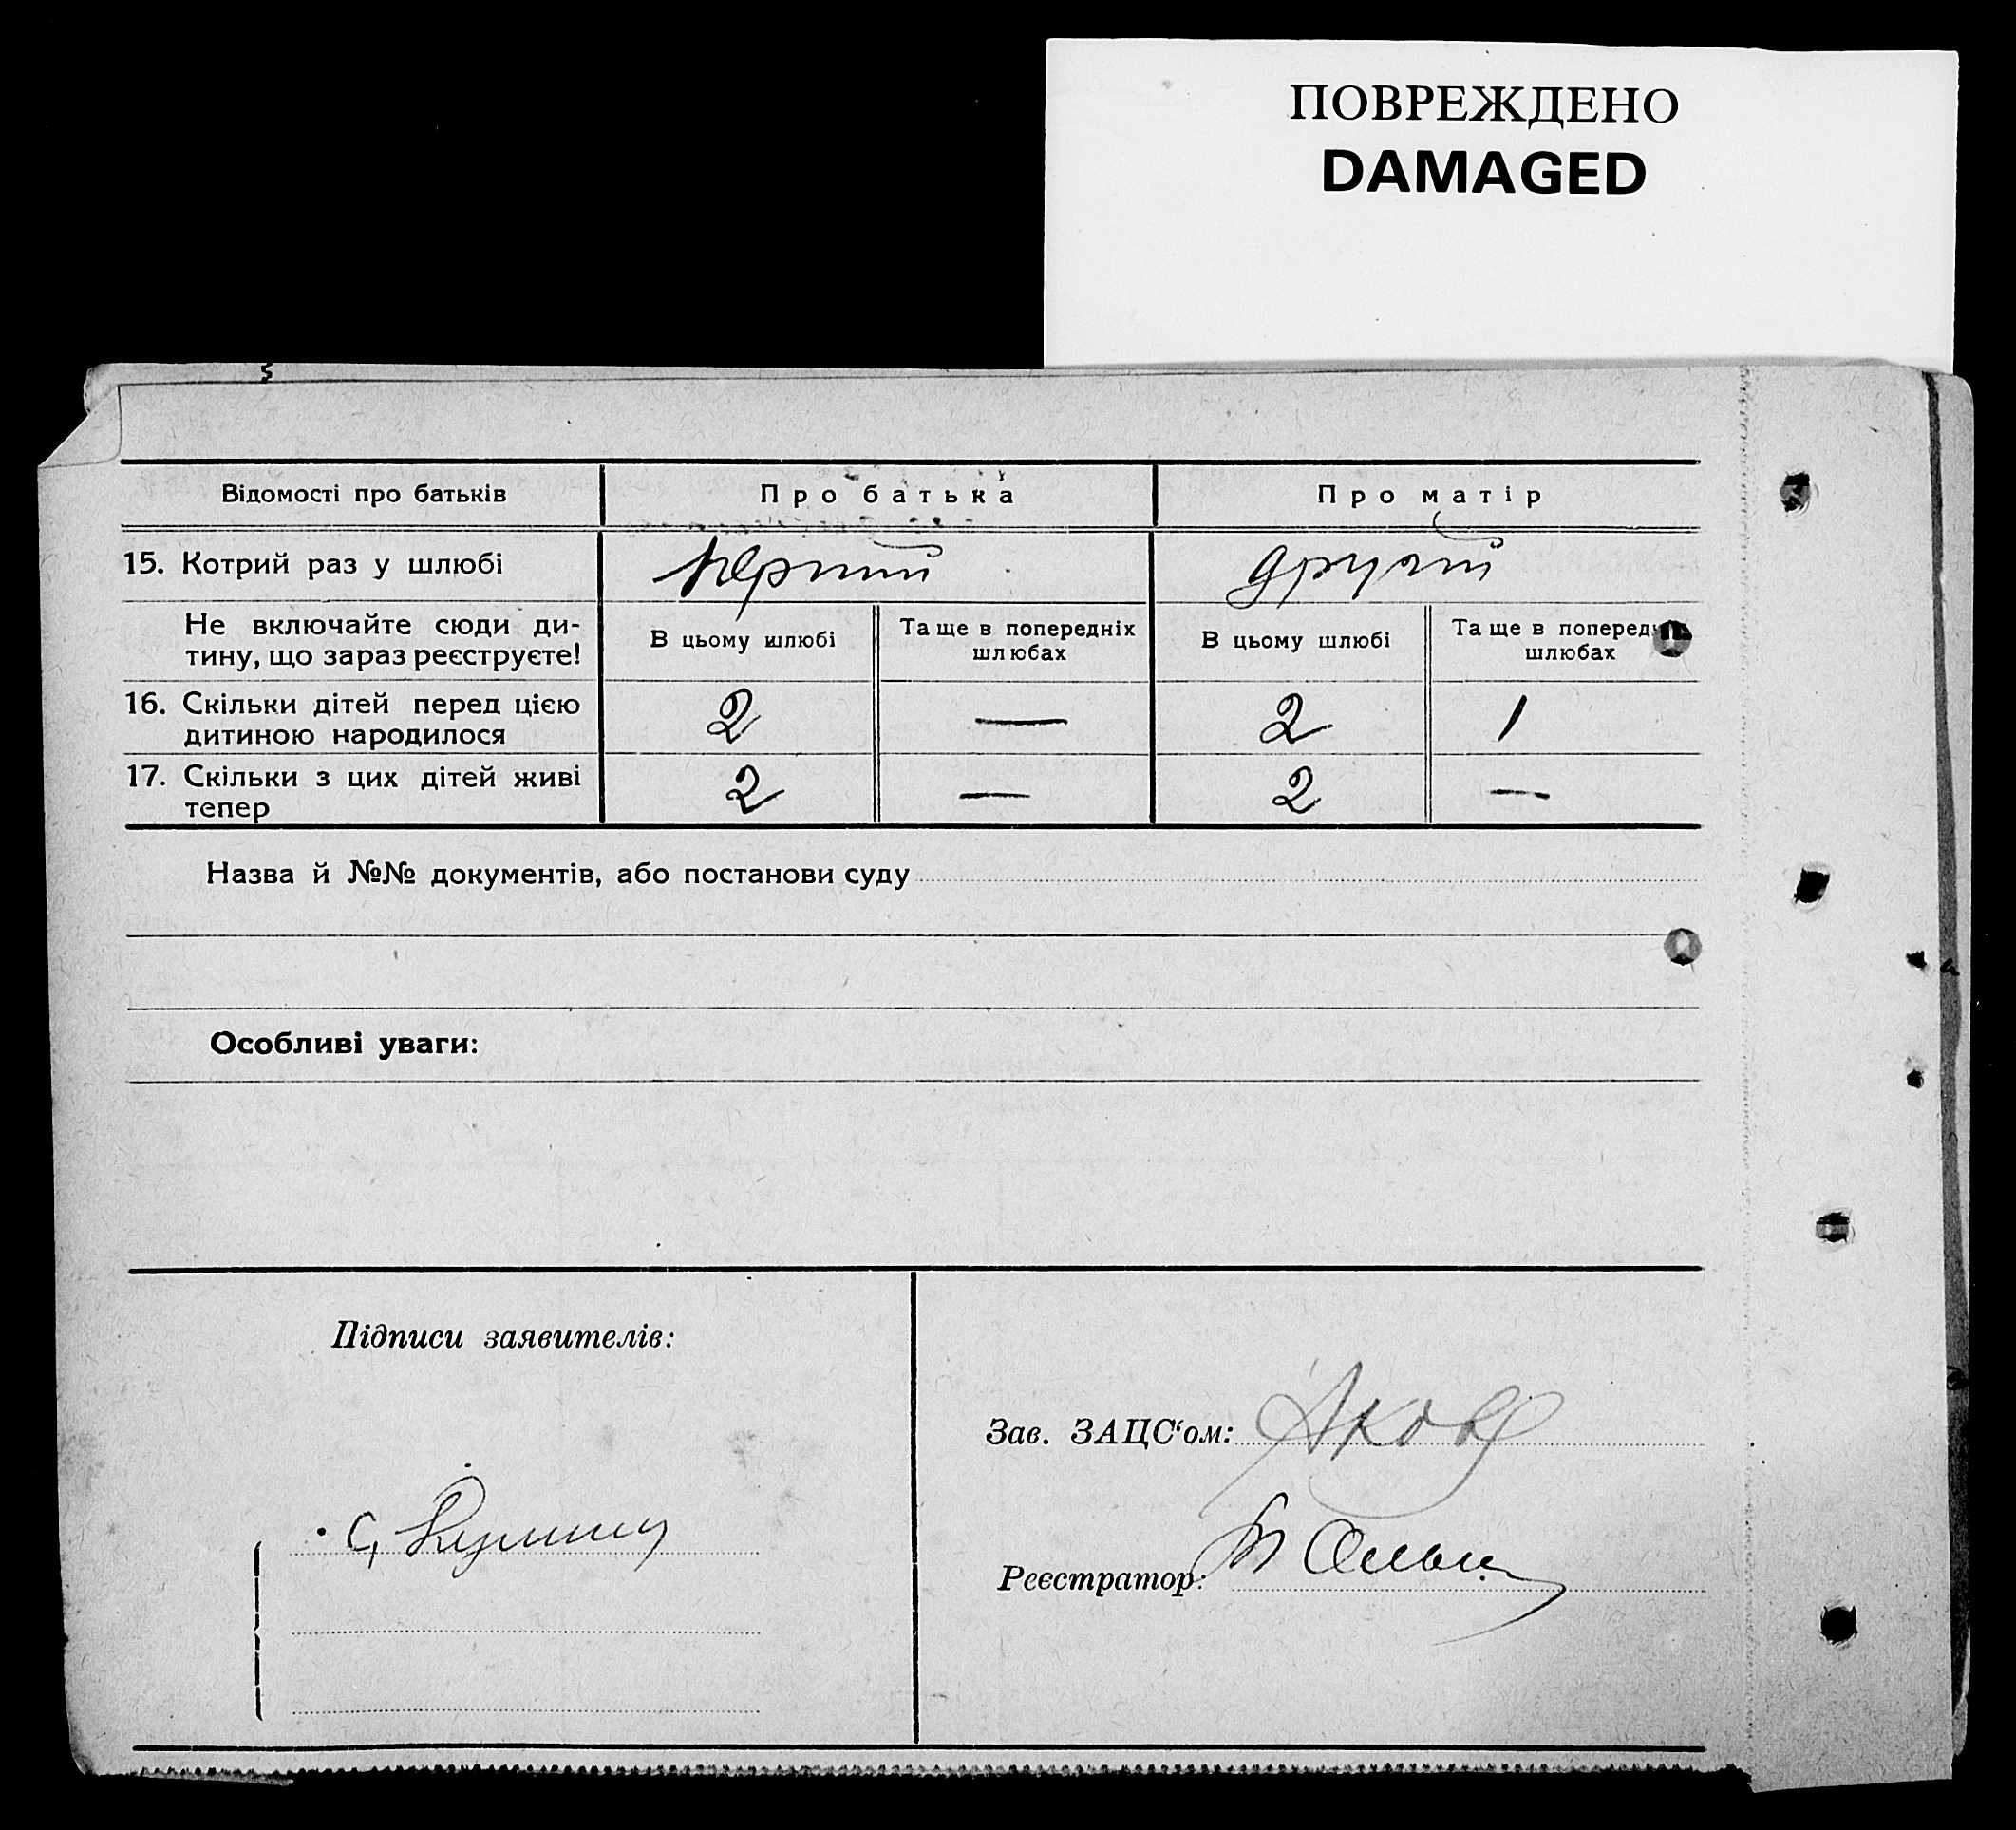 ПОВРЕЖДЕНО
DAMAGED
Відомості про батьків
Про батька
Про матір
15. Котрий раз у шлюбі
перший
другий
Не включайте сюди ди-
тину, що зараз реєструєте!
В цьому шлюбі
Та ще в попередніх
шлюбах
В цьому шлюбі
Та ще в поперед
шлюбах
16. Скільки дітей перед цією
дитиною народилося
2
—
2
1
17. Скільки з цих дітей живі
тепер
2
—
2
—
Назва й №№ документів, або постанови суду
Особливі уваги:
Підписи заявителів:
Зав. ЗАЦС‘ом:
Реєстратор: